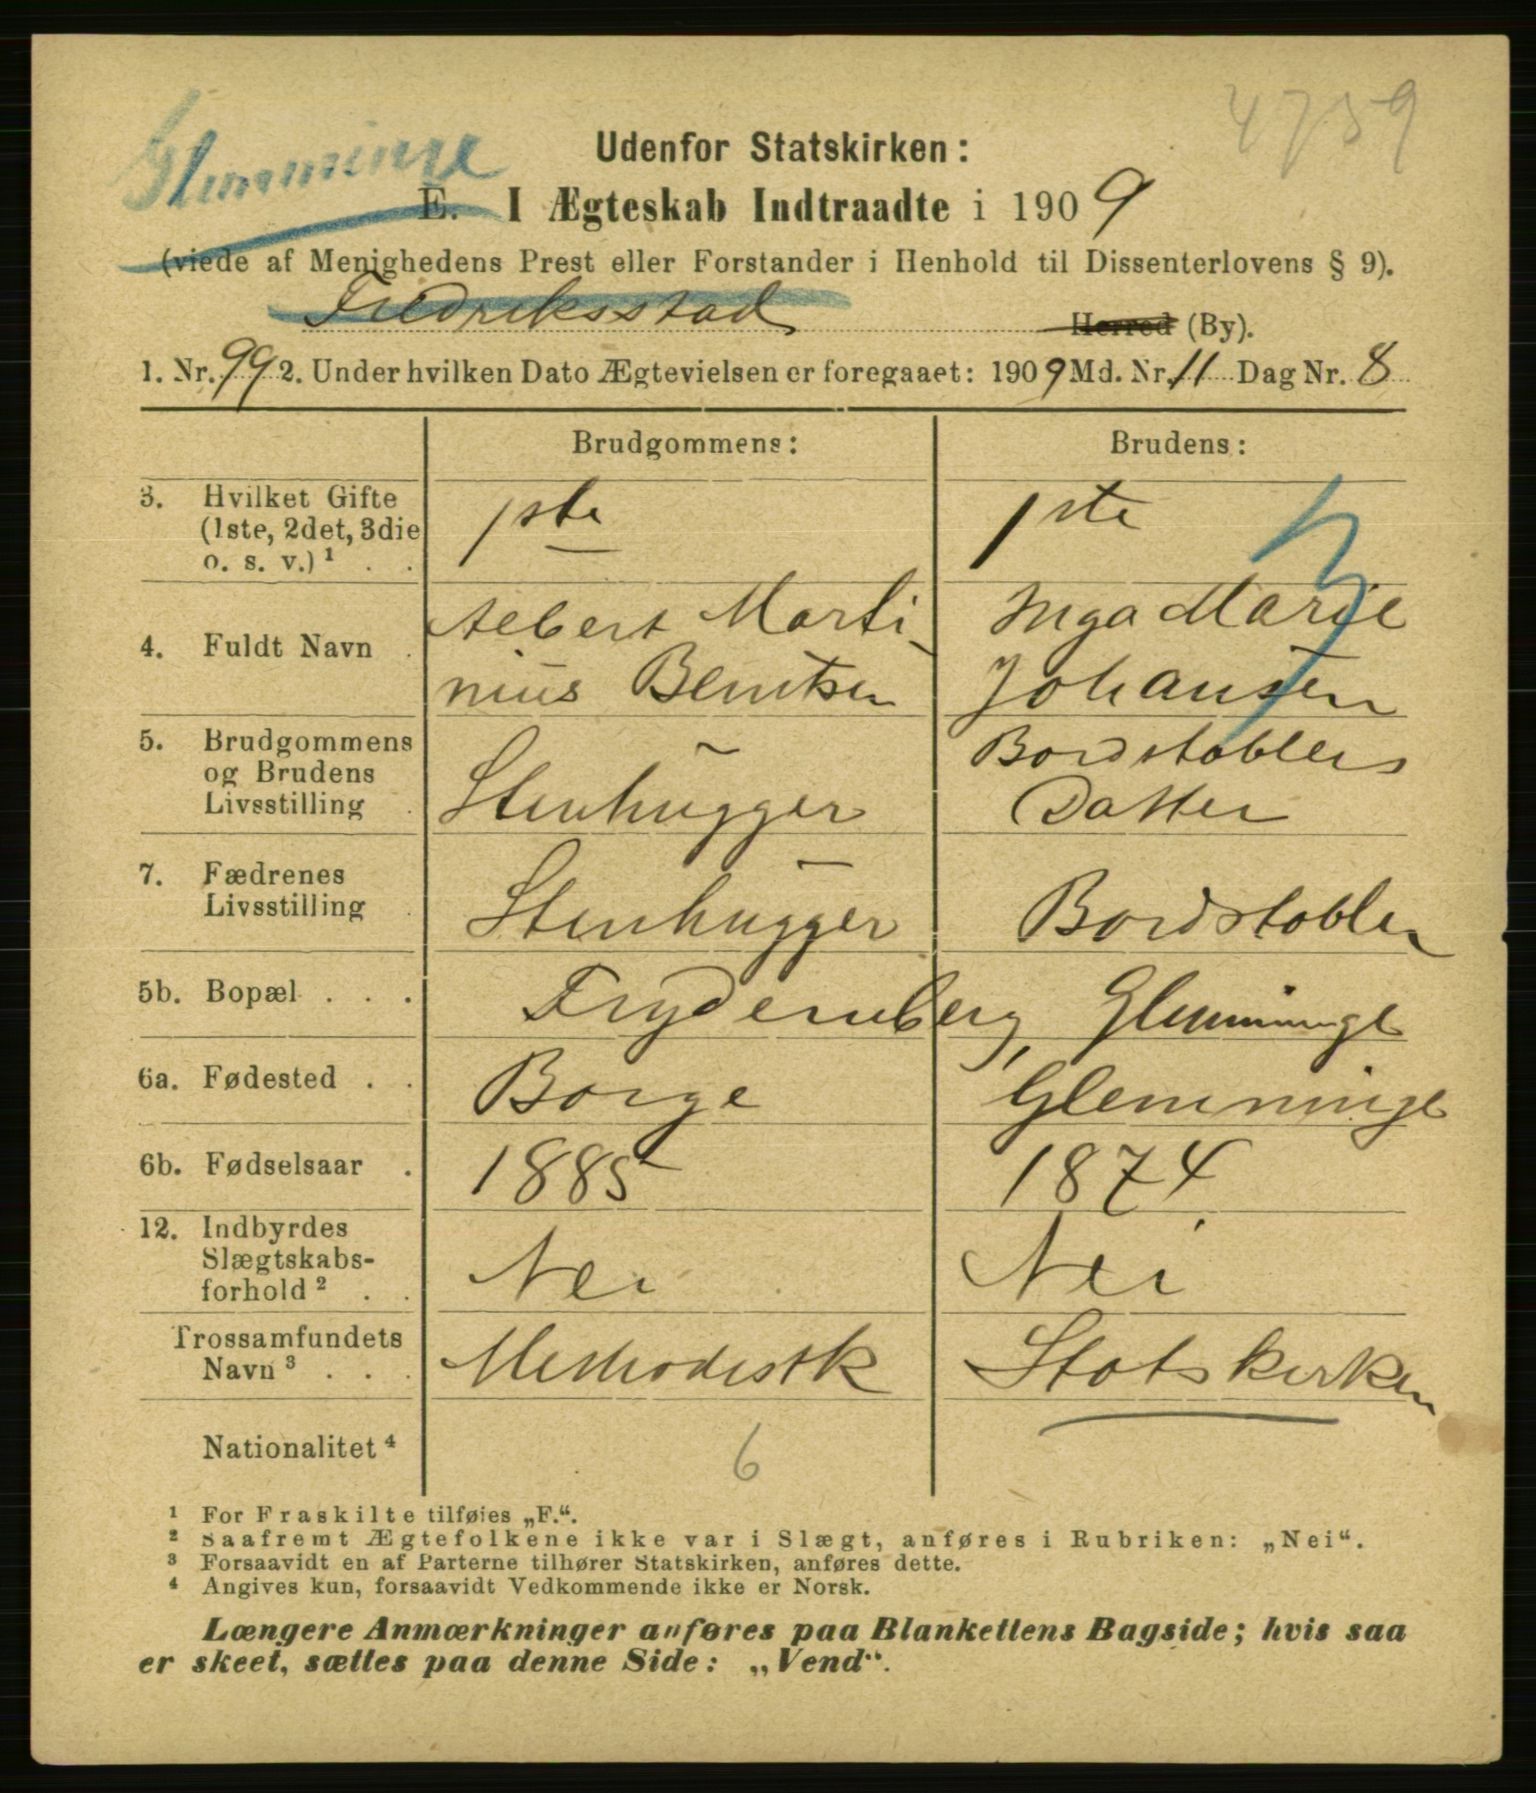 4759
Glemminge
Udenfor Statskirken:
E. I Ægteskab Indtraadte i 1909
(viede af Menighedens Prest eller Forstander i Henhold til Dissenterlovens § 9).
Fredriksstad Herred (By).
1. Nr. 99 2. Under hvilken Dato Ægtevielsen er foregaaet: 1909 Md. Nr. 11 Dag Nr. 8
Brudgommens: Brudens:
3. Hvilket Gifte (1ste, 2det, 3die o. s. v.) ¹ . . 1ste 1ste
4. Fuldt Navn . Albert Marti-
nius Berntsen Inga Marie
Johansen
5. Brudgommens og Brudens Livsstilling . Stenhugger Bordstablers
Datter
7. Fædrenes Livsstilling . Stenhugger Bordstabler
5b. Bopæl . . . Frydenberg, Glemminge
6a. Fødested . . Borge Glemminge
6b. Fødselsaar . 1885 1874
12. Indbyrdes Slægtskabs-
forhold ² . . Nei Nei
Trossamfundets Navn ³ . . . Methodistk Statskirken
Nationalitet ⁴
6
¹ For Fraskilte tilføies „F.“.
² Saafremt Ægtefolkene ikke var i Slægt, anføres i Rubriken: „Nei“.
³ Forsaavidt en af Parterne tilhører Statskirken, anføres dette.
⁴ Angives kun, forsaavidt Vedkommende ikke er Norsk.
Længere Anmærkninger anføres paa Blankettens Bagside; hvis saa
er skeet, sættes paa denne Side: „Vend“.